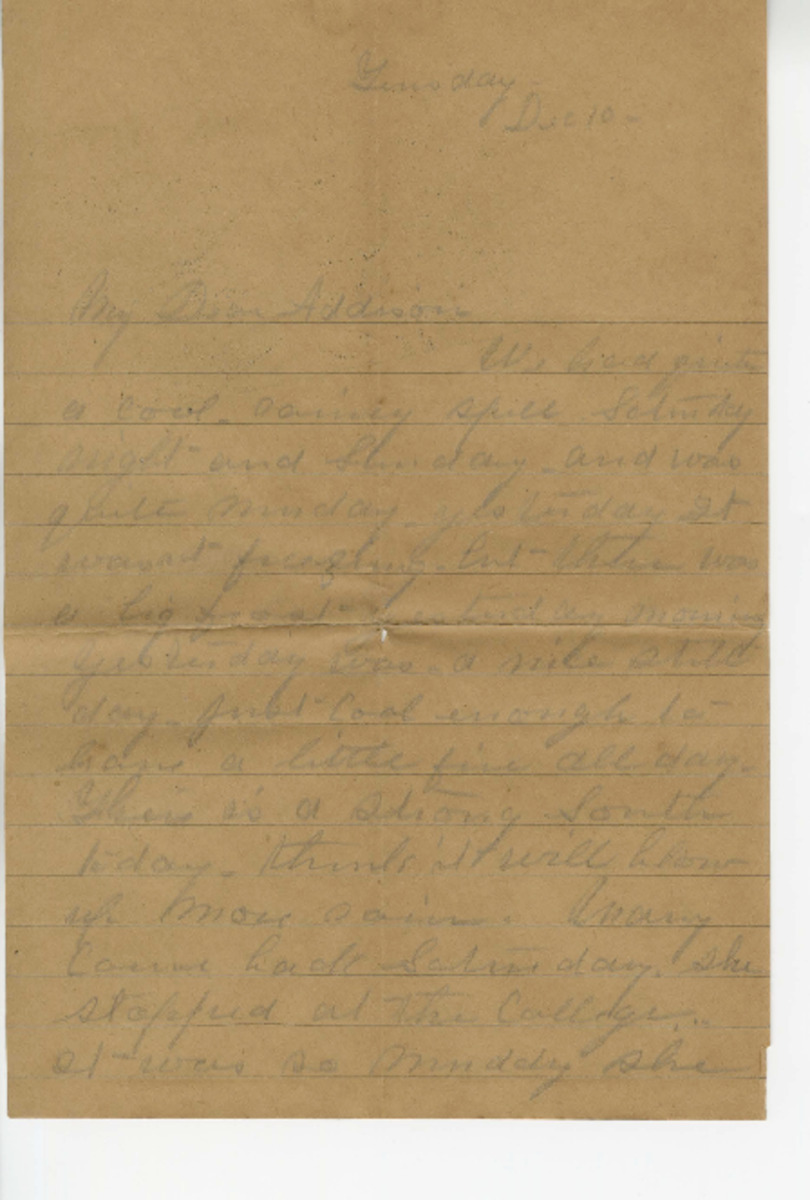 Tuesday -
Dec 10 -
My Dear Addison
We had quite
a cool - rainy spell Saturday
night and Sunday - and was
quite muday - yesterday it
wasn't freezing - but there was
a big frost yesterday morning
yesterday was a nice still
day - just cool enough to
have a little fire all day -
There is a strong South
today - think it will blow
up more rain - Mary
came back Saturday. She
stopped at the College -
it was so muddy she